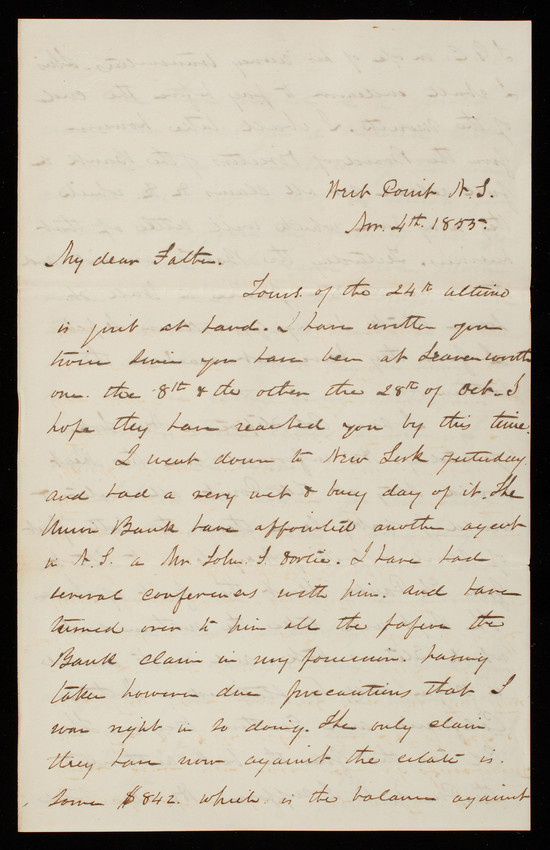 West Point N. Y.
Nov. 4th. 1855.
My dear Father.
Yours of the 24th ultimo
is just at hand. I have written you
twice since you have been at Leavenworth
one the 8th & the other the 28th of Oct. I
hope they have reached you by this time.
I went down to New York yesterday
and had a very wet & busy day of it. The
Bank have appointed another agent
in N. Y. a Mr John J. I have had
several conferences with him. and have
turned over to him all the papers the
Bank claim in my possession. having
taken however due precautions that I
was right in so doing. The only claim
they have now against the estate is
some $842. which is the balance against